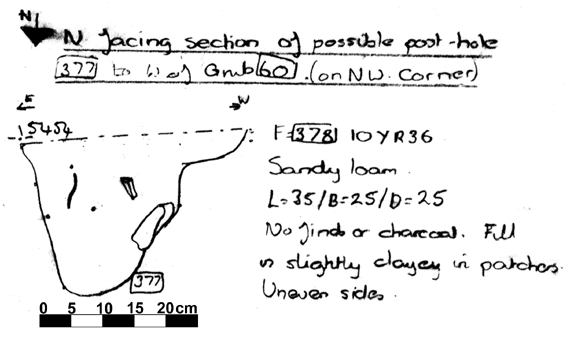 N
N facing section of possible post-hole
377 to W of Grub 60. (on NW. Corner)
E
W
15454
F= 378 10YR36
Sandy loam.
L=35/B=25/D=25
No finds or charcoal. Fill
is slightly clayey in patches.
Uneven sides.
377
0 5 10 15 20cm